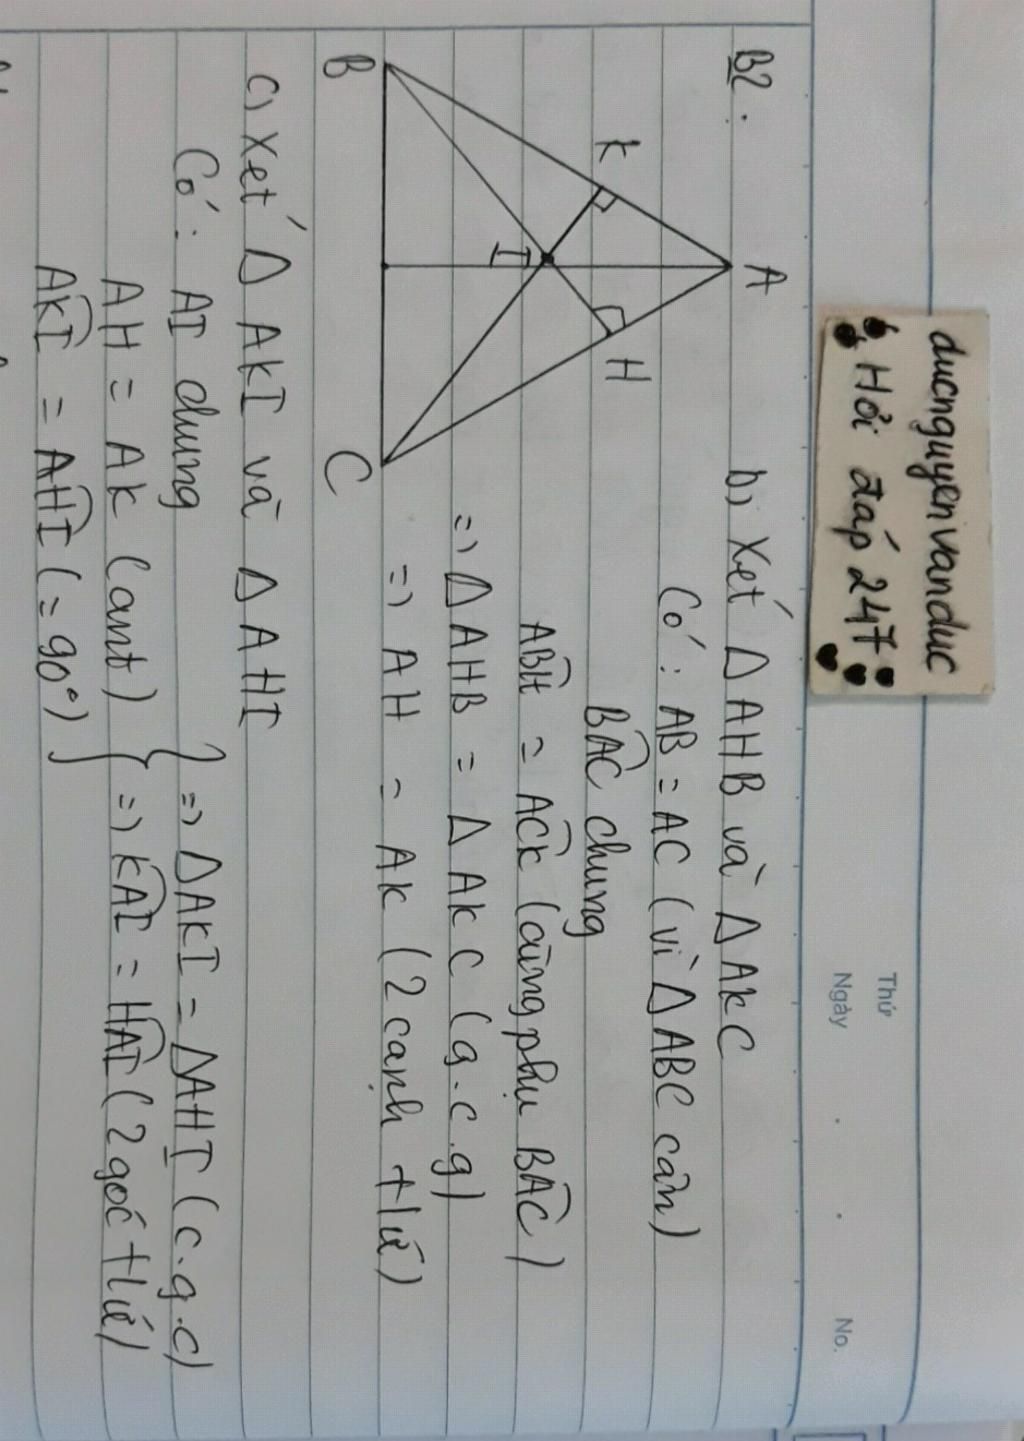 ducnguyenvanduc
Hỏi đáp 247
Thứ
Ngày
No.
B2.
A
K
H
I
B
C
b) Xét Δ AHB và Δ AKC
Có: AB = AC (vì Δ ABC cân)
BAC chung
ABH = ACK (cùng phụ BAC)
=) Δ AHB = Δ AKC (g.c.g)
=) AH = AK (2 cạnh tứ)
c) Xét Δ AKI và Δ AHI
Có: AI chung
AH = AK (cmt)
AKI = AHI (= 90°)
=) ΔAKI = ΔAHI (c.g.c)
=) KAI = HAI (2 góc tứ)